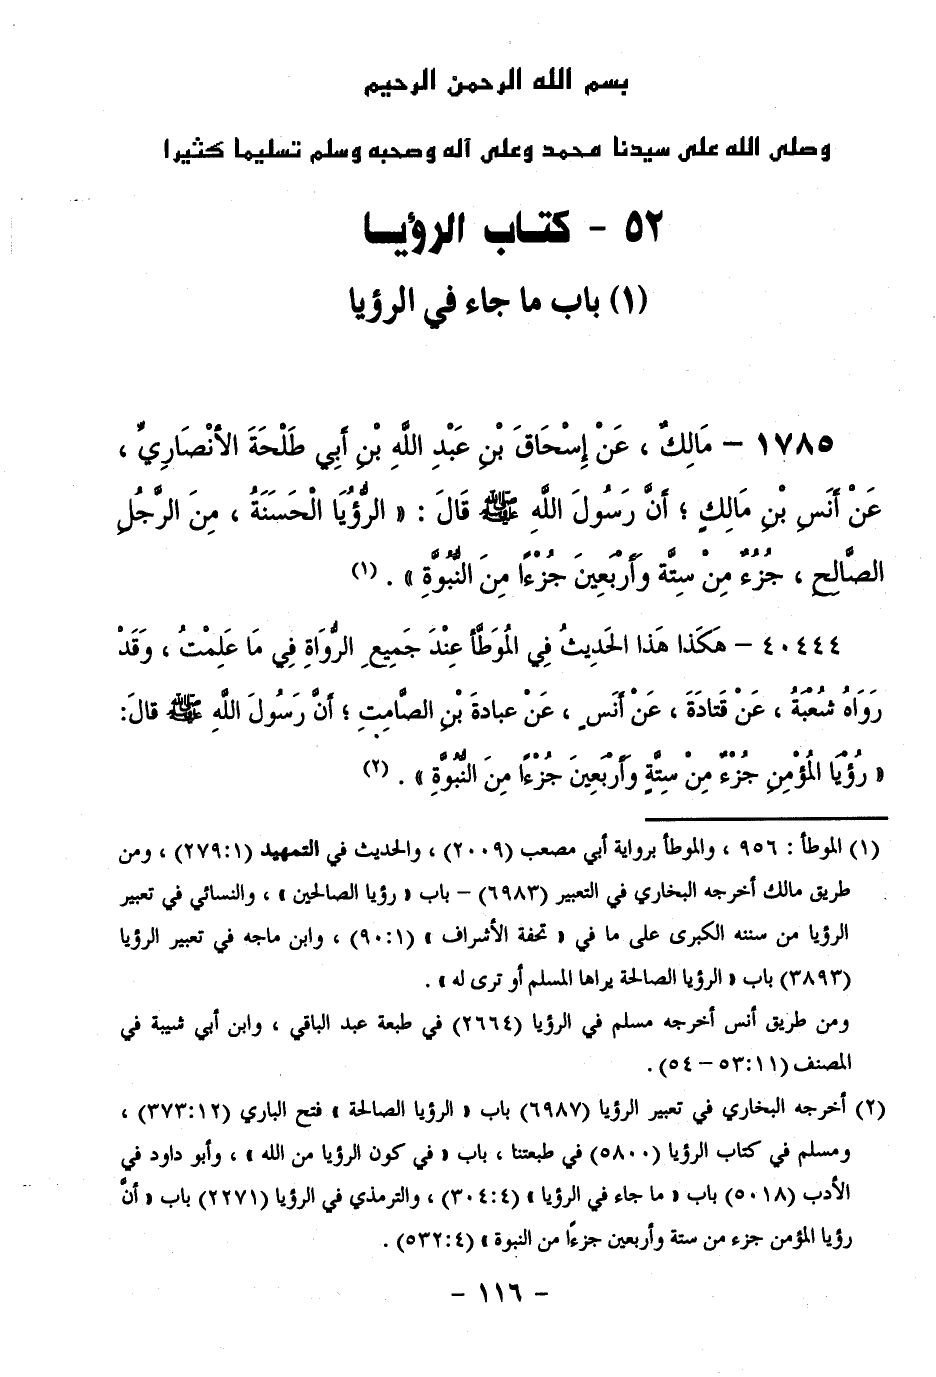 بسم الله الرحمن الرحيم
وصلى الله على سيدنا محمد وعلى آله وصحبه وسلم تسليما كثيرا
٥٢ - كتاب الرؤيا
(١) باب ما جاء في الرؤيا
١٧٨٥ – مَالِكٌ ، عَنْ إِسْحَاقَ بْنِ عَبْدِ اللَّهِ بْنِ أَبِي طَلْحَةَ الأَنْصَارِيِّ ،
عَنْ أَنَسِ بْنِ مَالِكٍ ؛ أَنَّ رَسُولَ اللَّهِ ﷺ قَالَ : « الرُّؤْيَا الْحَسَنَةُ ، مِنَ الرَّجُلِ
الصَّالِحِ ، جُزْءٌ مِنْ سِتَّةٍ وَأَرْبَعِينَ جُزْءًا مِنَ النُّبُوَّةِ » . (١)
٤٠٤٤٤ – هَكَذا هَذا الحَديثُ فِي المُوَطَّأ عِنْدَ جَمِيعِ الرُّوَاةِ فِي مَا عَلِمْتُ ، وَقَدْ
رَوَاهُ شُعْبَةُ ، عَنْ قَتادَةَ ، عَنْ أَنَسٍ ، عَنْ عبادةَ بْنِ الصامِتِ ؛ أنَّ رَسُولَ اللَّهِ ﷺ قالَ:
« رُؤْيَا المُؤْمِنِ جُزْءٌ مِنْ سِتَّةٍ وَأَرْبَعِينَ جُزْءًا مِنَ النُّبُوَّةِ » . (٢)
(١) الموطأ : ٩٥٦ ، والموطأ برواية أبي مصعب (٢٠٠٩) ، والحديث في التمهيد (٢٧٩:١) ، ومن
طريق مالك أخرجه البخاري في التعبير (٦٩٨٣) – باب « رؤيا الصالحين » ، والنسائي في تعبير
الرؤيا من سننه الكبرى على ما في « تحفة الأشراف » (٩٠:١) ، وابن ماجه في تعبير الرؤيا
(٣٨٩٣) باب « الرؤيا الصالحة يراها المسلم أو ترى له » .
ومن طريق أنس أخرجه مسلم في الرؤيا (٢٦٦٤) في طبعة عبد الباقي ، وابن أبي شيبة في
المصنف (٥٣:١١ – ٥٤) .
(٢) أخرجه البخاري في تعبير الرؤيا (٦٩٨٧) باب « الرؤيا الصالحة » فتح الباري (٣٧٣:١٢) ،
ومسلم في كتاب الرؤيا (٥٨٠٠) في طبعتنا ، باب « في كون الرؤيا من الله » ، وأبو داود في
الأدب (٥٠١٨) باب « ما جاء في الرؤيا » (٣٠٤:٤) ، والترمذي في الرؤيا (٢٢٧١) باب « أنَّ
رؤيا المؤمن جزء من ستة وأربعين جزءًا من النبوة » (٥٣٢:٤) .
– ١١٦ –